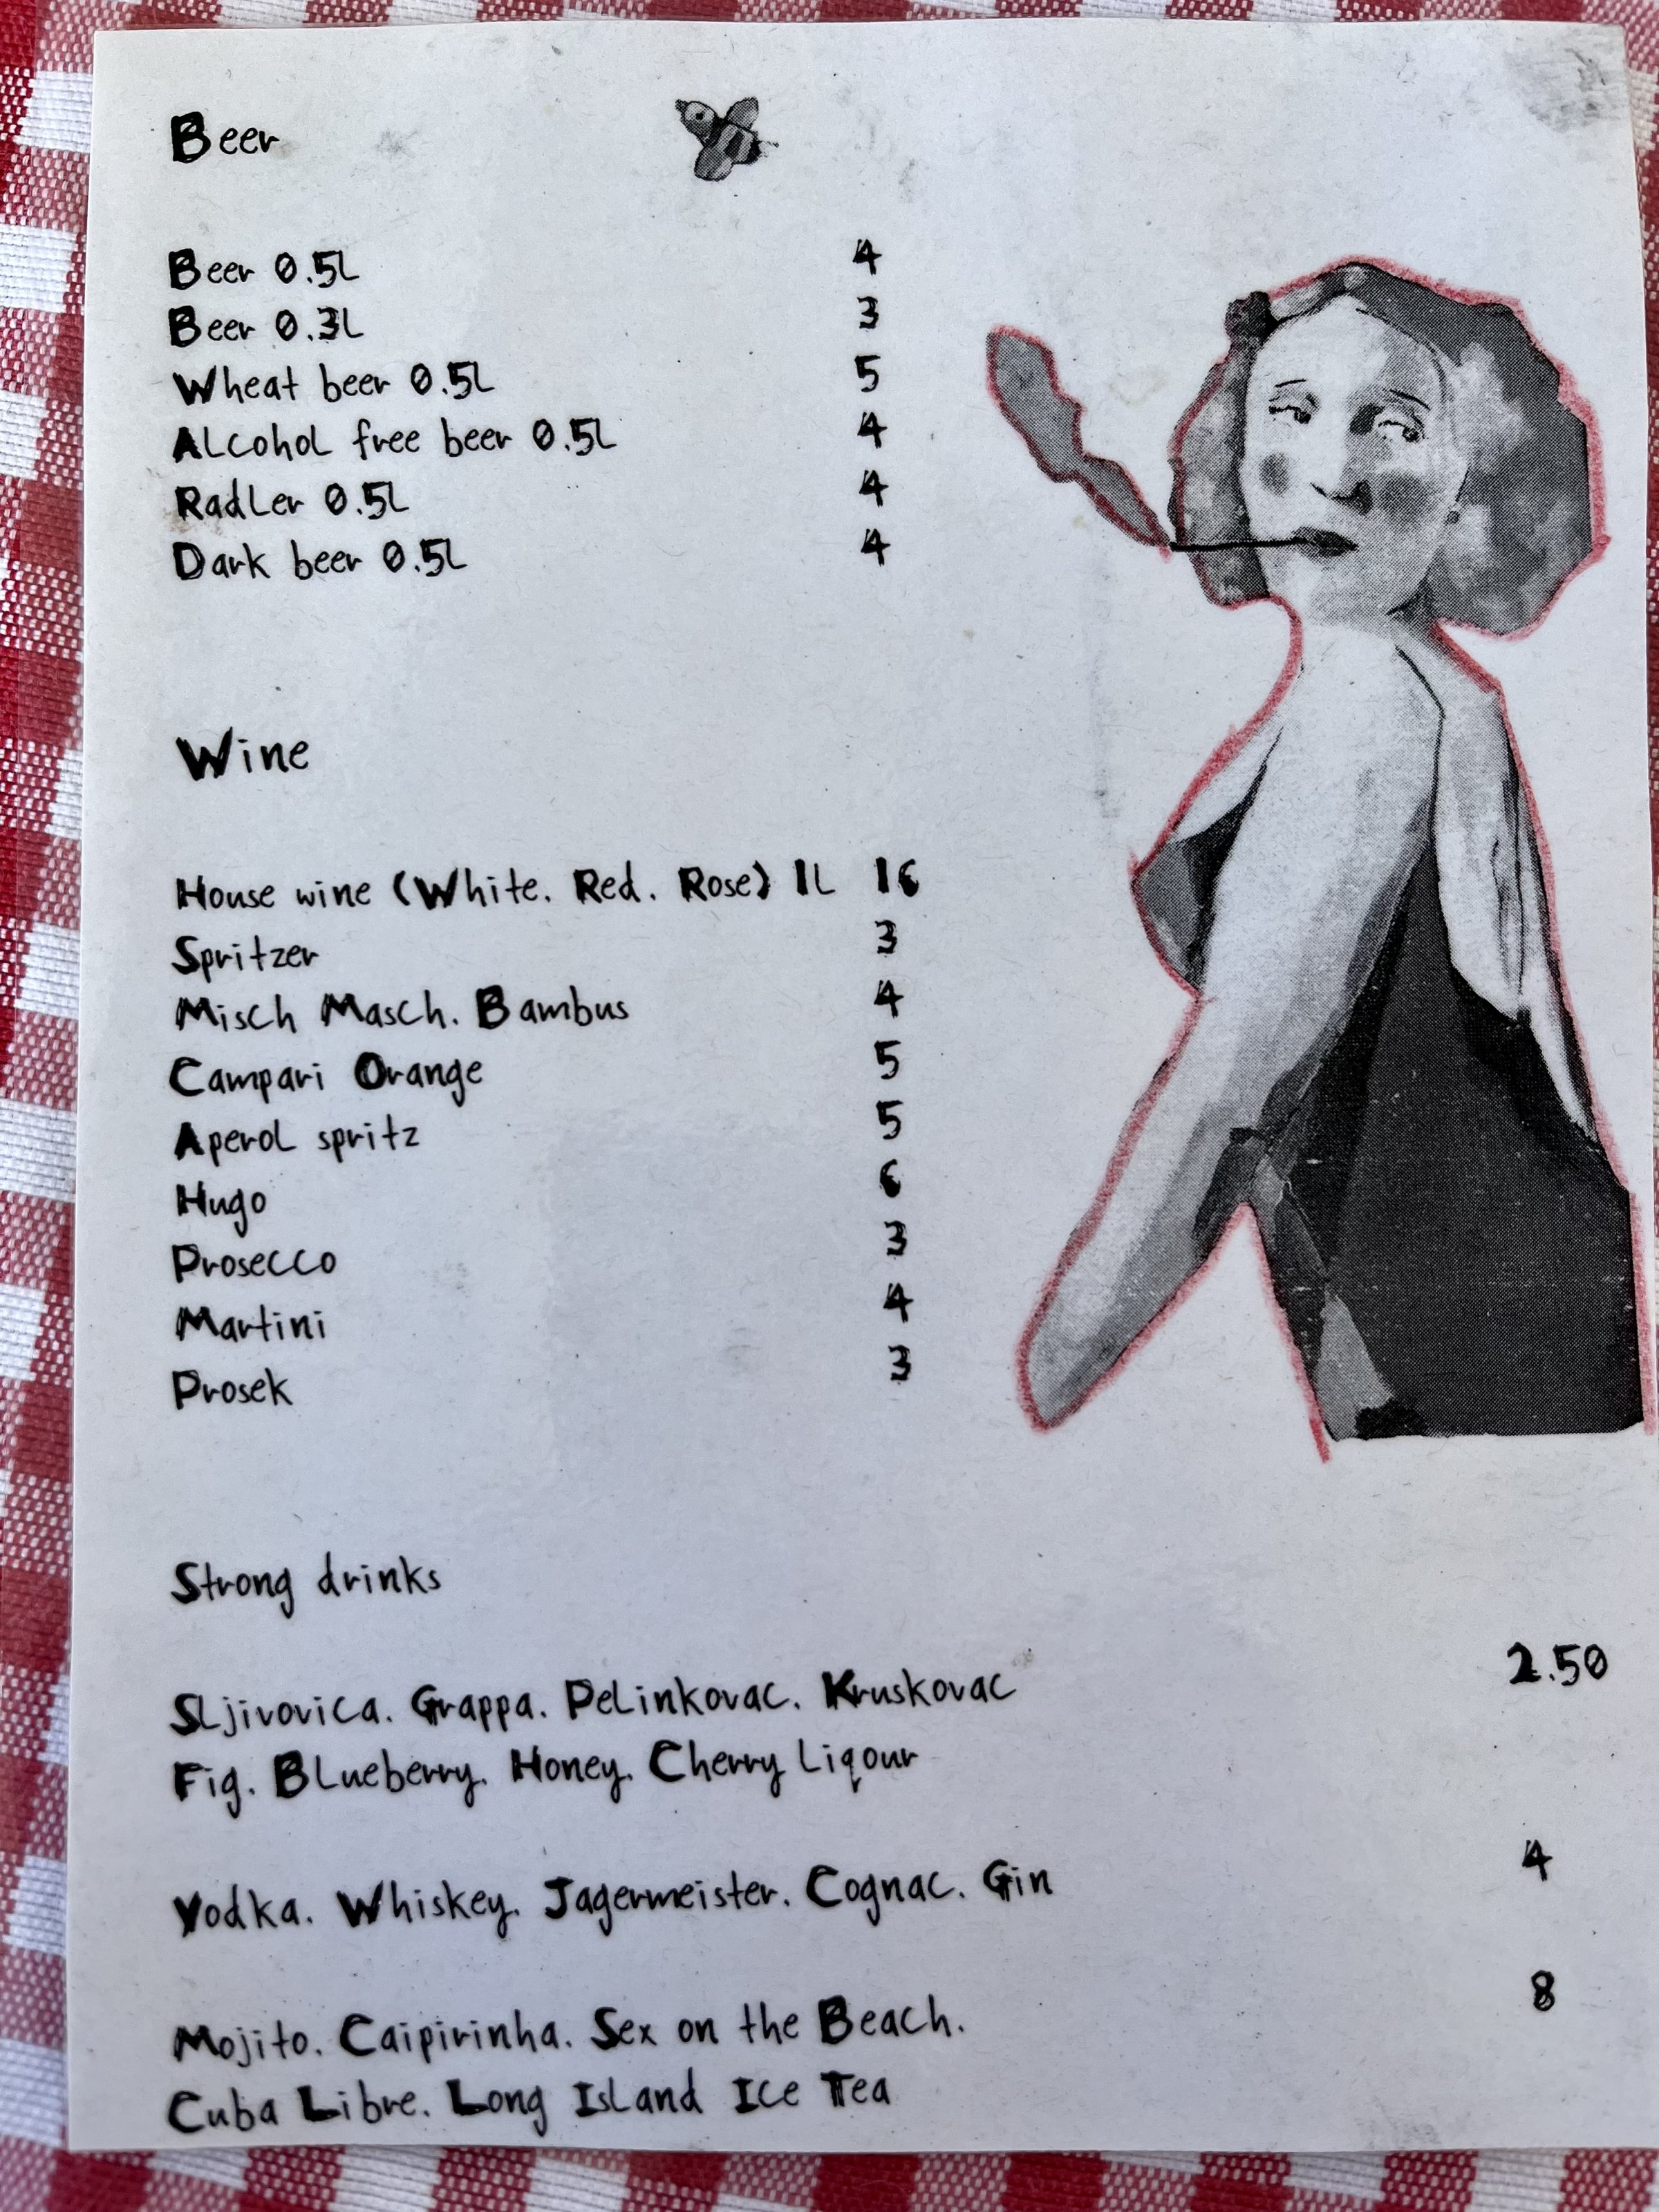 Beer
Beer 0.5L 4
Beer 0.3L 3
Wheat beer 0.5L 5
Alcohol free beer 0.5L 4
Radler 0.5L 4
Dark beer 0.5L 4
Wine
House wine (White. Red. Rose) 1L 16
Spritzer 3
Misch Masch. Bambus 4
Campari Orange 5
Aperol spritz 5
Hugo 6
Prosecco 3
Martini 4
Prosek 3
Strong drinks
Sljivovica. Grappa. Pelinkovac. Kruskovac 2.50
Fig. Blueberry. Honey. Cherry Liqour
Vodka. Whiskey. Jagermeister. Cognac. Gin 4
Mojito. Caipirinha. Sex on the Beach. 8
Cuba Libre. Long Island Ice Tea